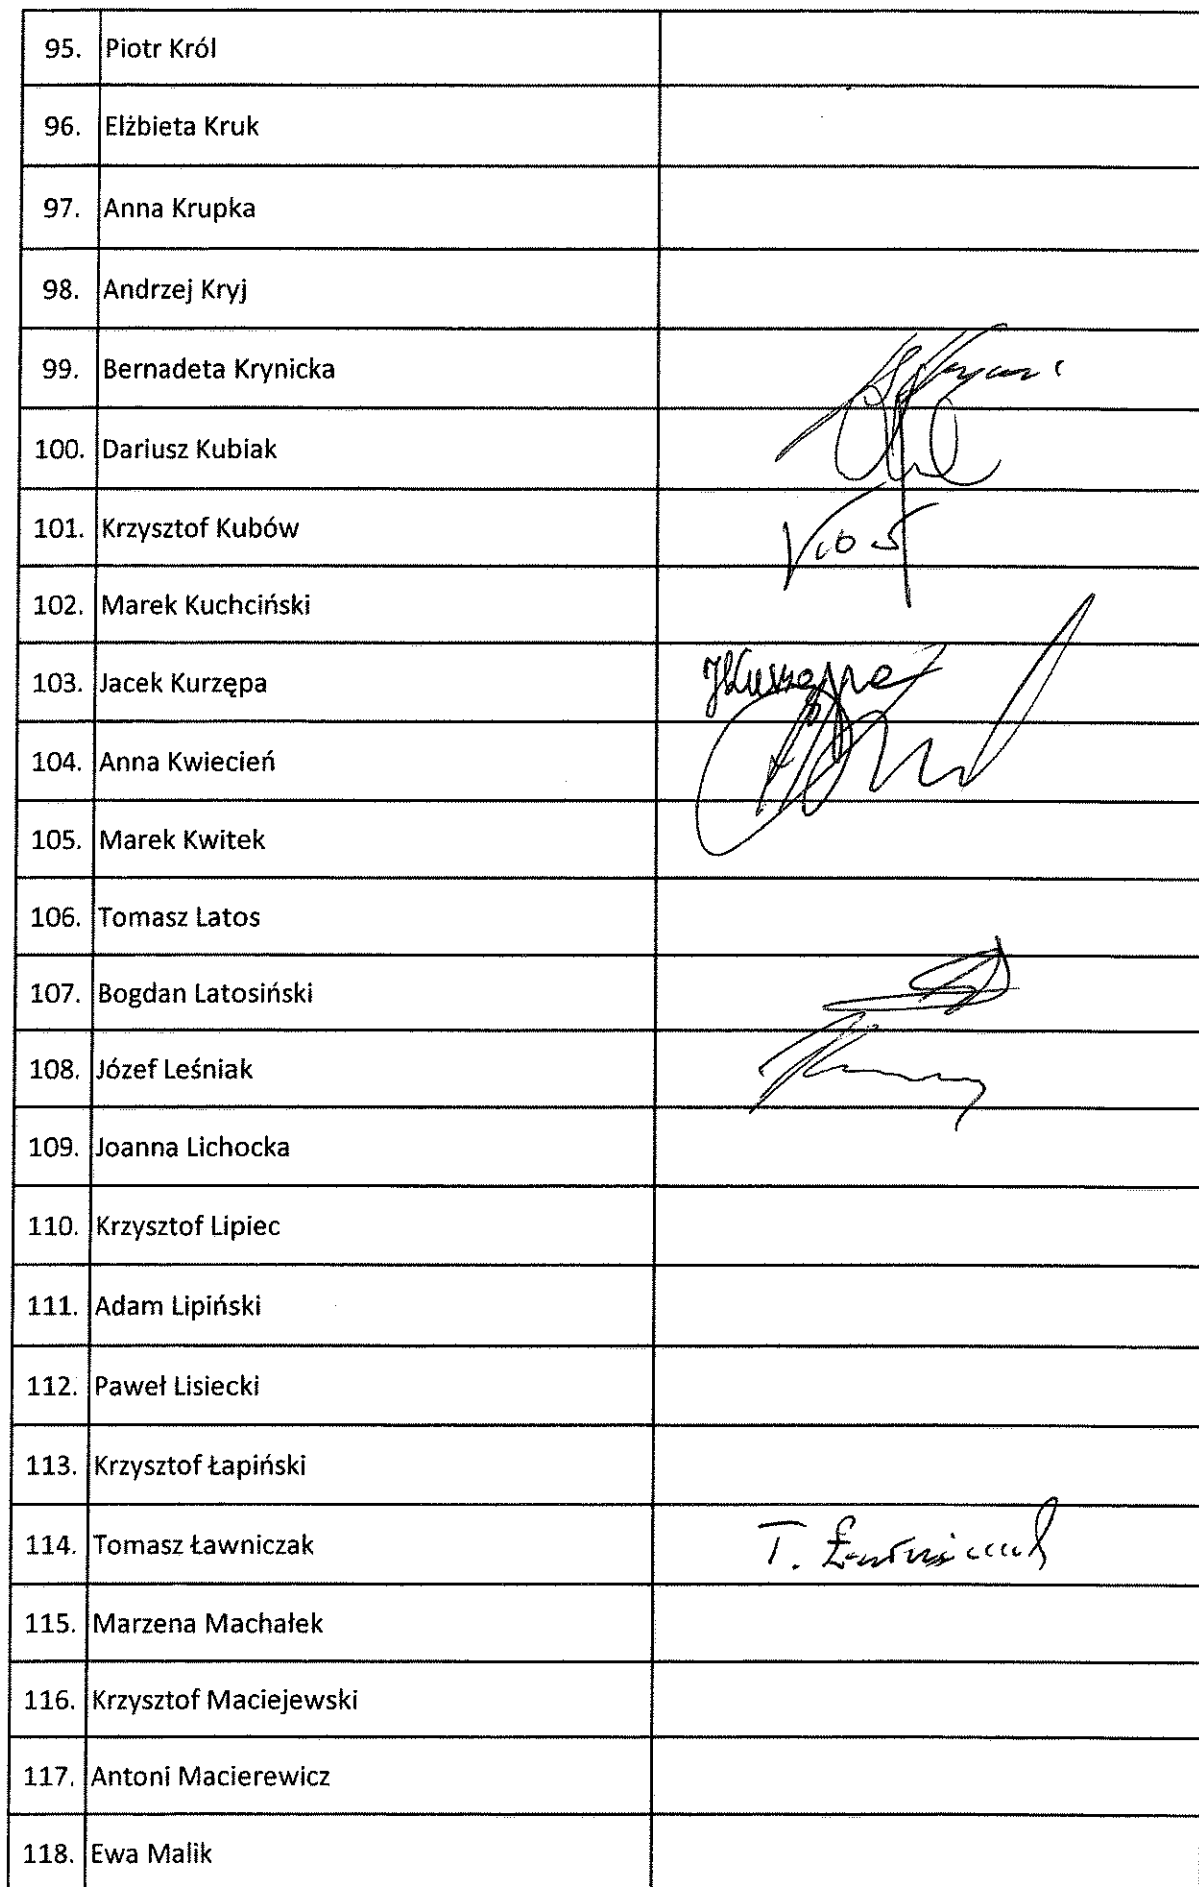 95. Piotr Król
96. Elżbieta Kruk
97. Anna Krupka
98. Andrzej Kryj
99. Bernadeta Krynicka
100. Dariusz Kubiak
101. Krzysztof Kubów
102. Marek Kuchciński
103. Jacek Kurzępa
104. Anna Kwiecień
105. Marek Kwitek
106. Tomasz Latos
107. Bogdan Latosiński
108. Józef Leśniak
109. Joanna Lichocka
110. Krzysztof Lipiec
111. Adam Lipiński
112. Paweł Lisiecki
113. Krzysztof Łapiński
114. Tomasz Ławniczak T.
115. Marzena Machałek
116. Krzysztof Maciejewski
117. Antoni Macierewicz
118. Ewa Malik